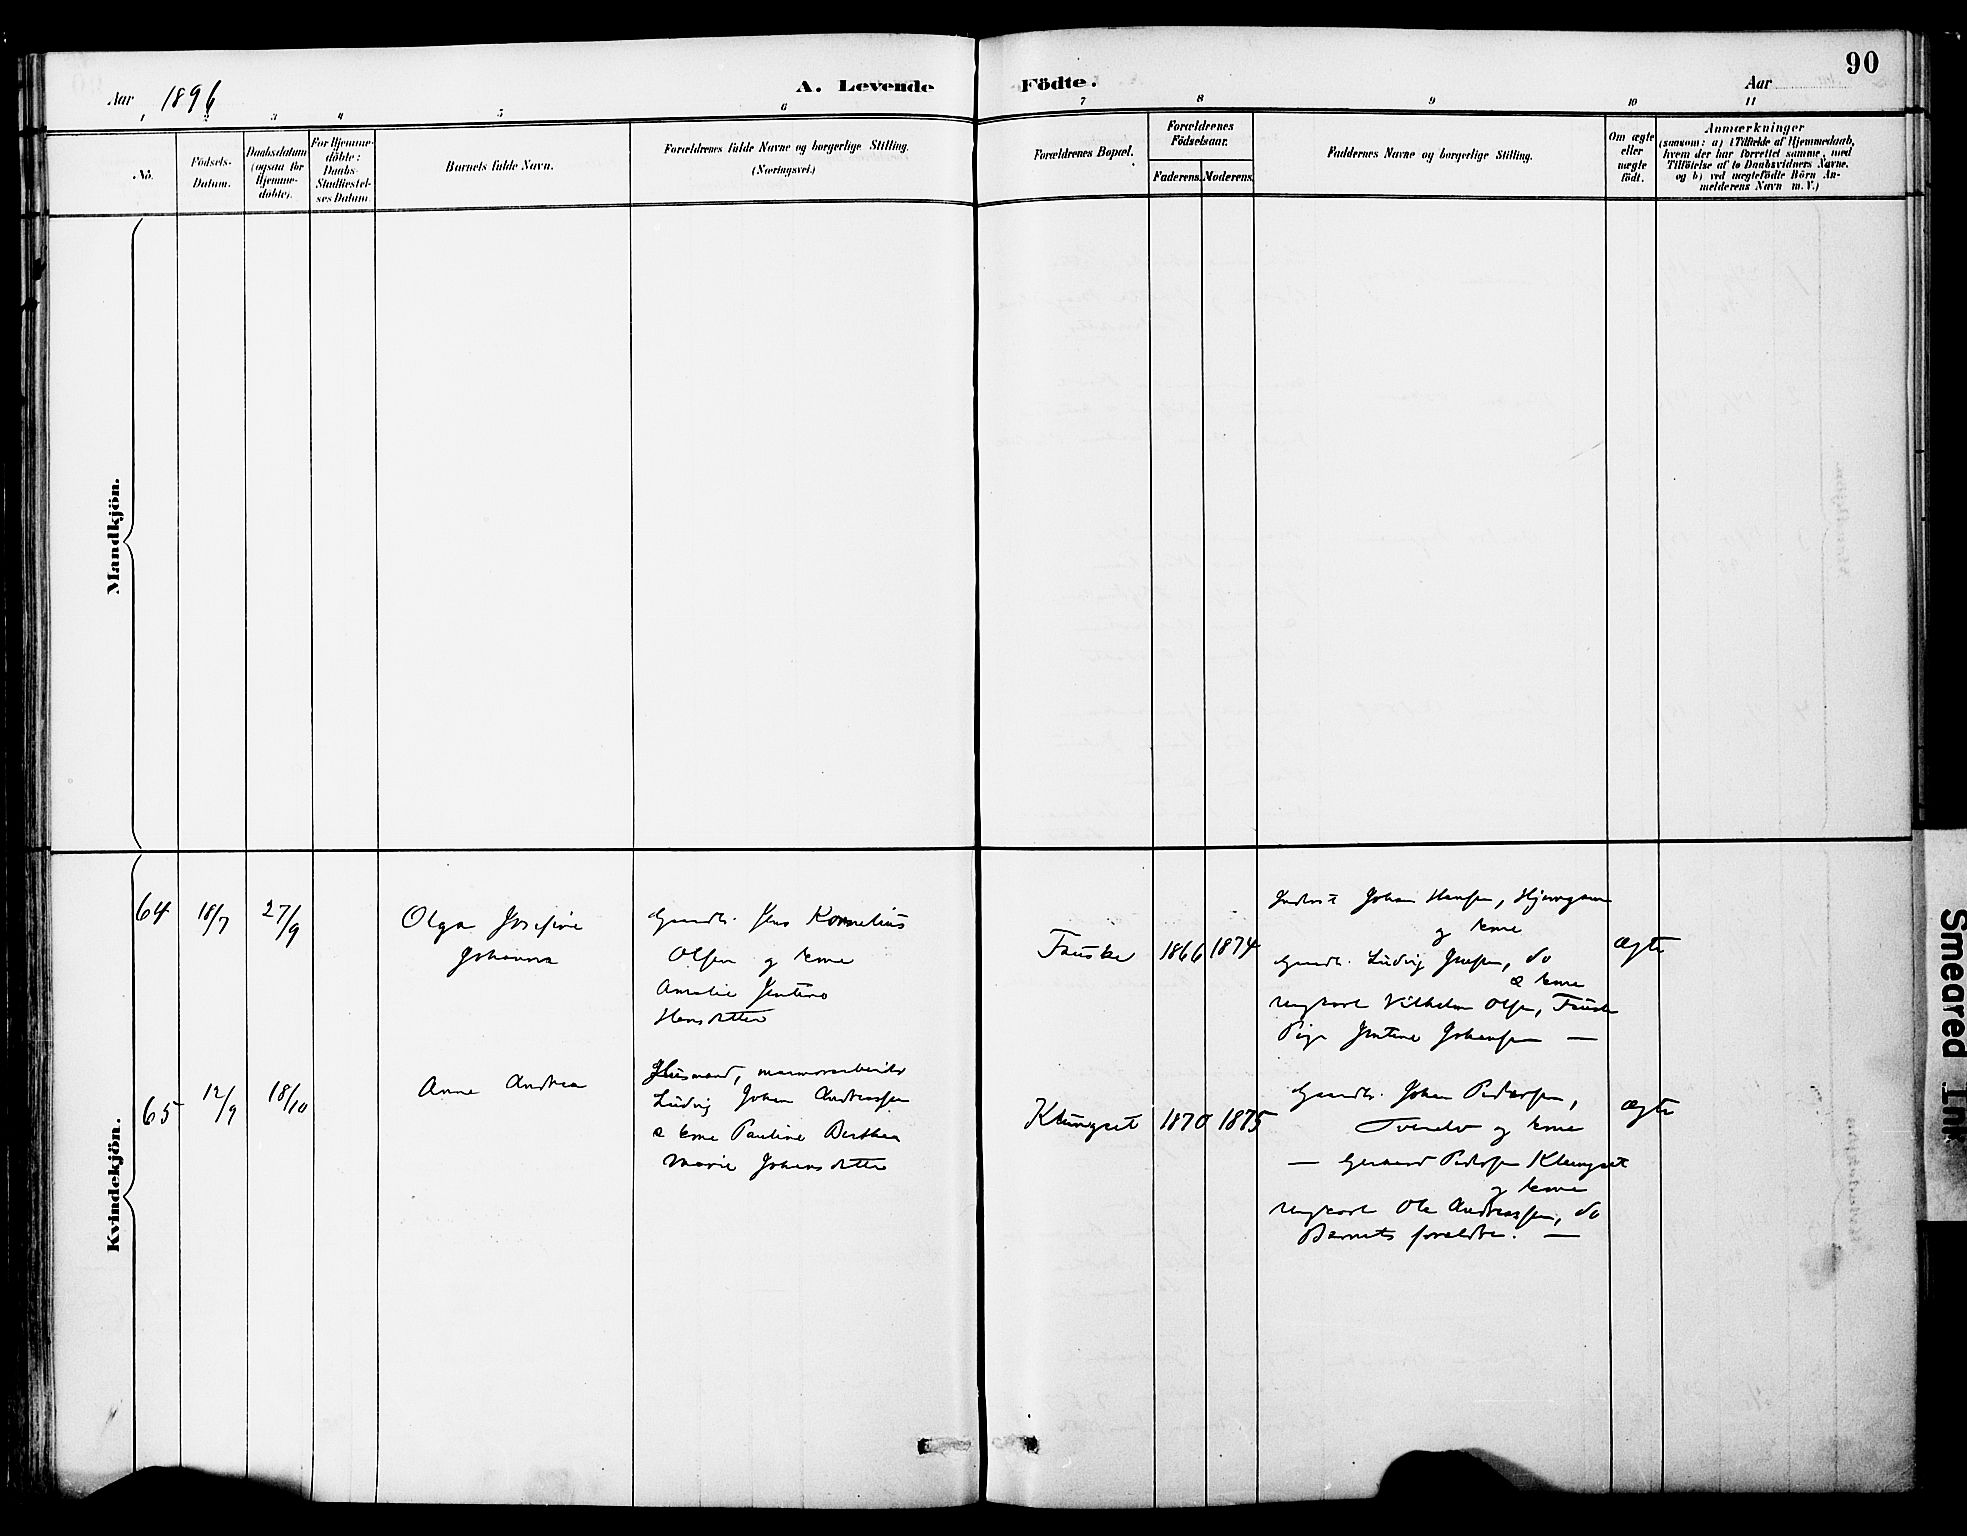 90
Aar 1896
A. Levende Födte.
Aar
1 2 3 4 5 6 7 8 9 10 11
No.
Födsels-
Datum.
Daabsdatum
(ogsaa for
Hjemme-
döbte).
For Hjemme-
döbte:
Daabs-
Stadfæstel-
ses Datum
Barnets fulde Navn.
Forældrenes fulde Navne og borgerlige Stilling.
(Næringsvei.)
Forældrenes Bopæl.
Forældrenes
Födselsaar.
Faderens. Moderens.
Faddernes Navne og borgerlige Stilling.
Om ægte
eller
uægte
födt.
Anmærkninger
(saasom: a) i Tilfælde af Hjemmedaab,
hvem der har forrettet samme, med
Tilföielse af to Daabsvidners Navne.
og b) ved uægtefödte Börn An-
melderens Navn m. V.)
Mandkjön.
Kvindekjön.
64 18/7 27/9
Olga Josefine
Johanna
Gaardb. Jens Kornelius
Olsen og kone
Amalie Jentine
Hansdatter
Fauske 1866 1874
Johan Hansen,
og kone
Gaardb. Ludvig Jensen, do
& kone
Ungkarl Vilhelm Olsen, Fauske
Pige Jentine Johansen —
ægte
65 12/9 18/10
Anne Andrea
Husmand, marmorarbeider
Ludvig Johan Andreassen
& kone Pauline Berthea
Marie Johansdatter
Klungset 1870 1875
Gaardb. Johan Pedersen,
og kone
— Gerhard Pedersen Klungset
og kone
Ungkarl Ole Andreassen, do
Barnets forældre. —
ægte
Smeared Ink